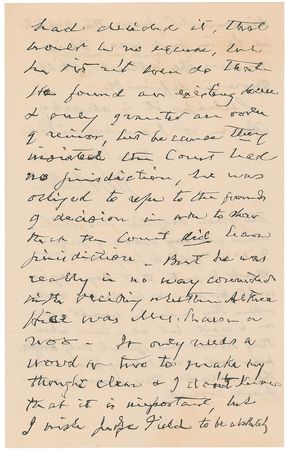 had decided it, that
would be no excuse, but
he did n't even do that.
He found an existing decree
& only granted an order
of revivor, but because they
insisted the Court had
no jurisdiction, he was
obliged to refer to the grounds
of decision in order to show
that the Court did have
jurisdiction – But he was
really in no way committed
with deciding whether Althea
Hill was Mrs. Sharon or
not – It only needs a
word or two to make my
thought clear & I don't know
that it is important, but
I wish Judge Field to be absolutely